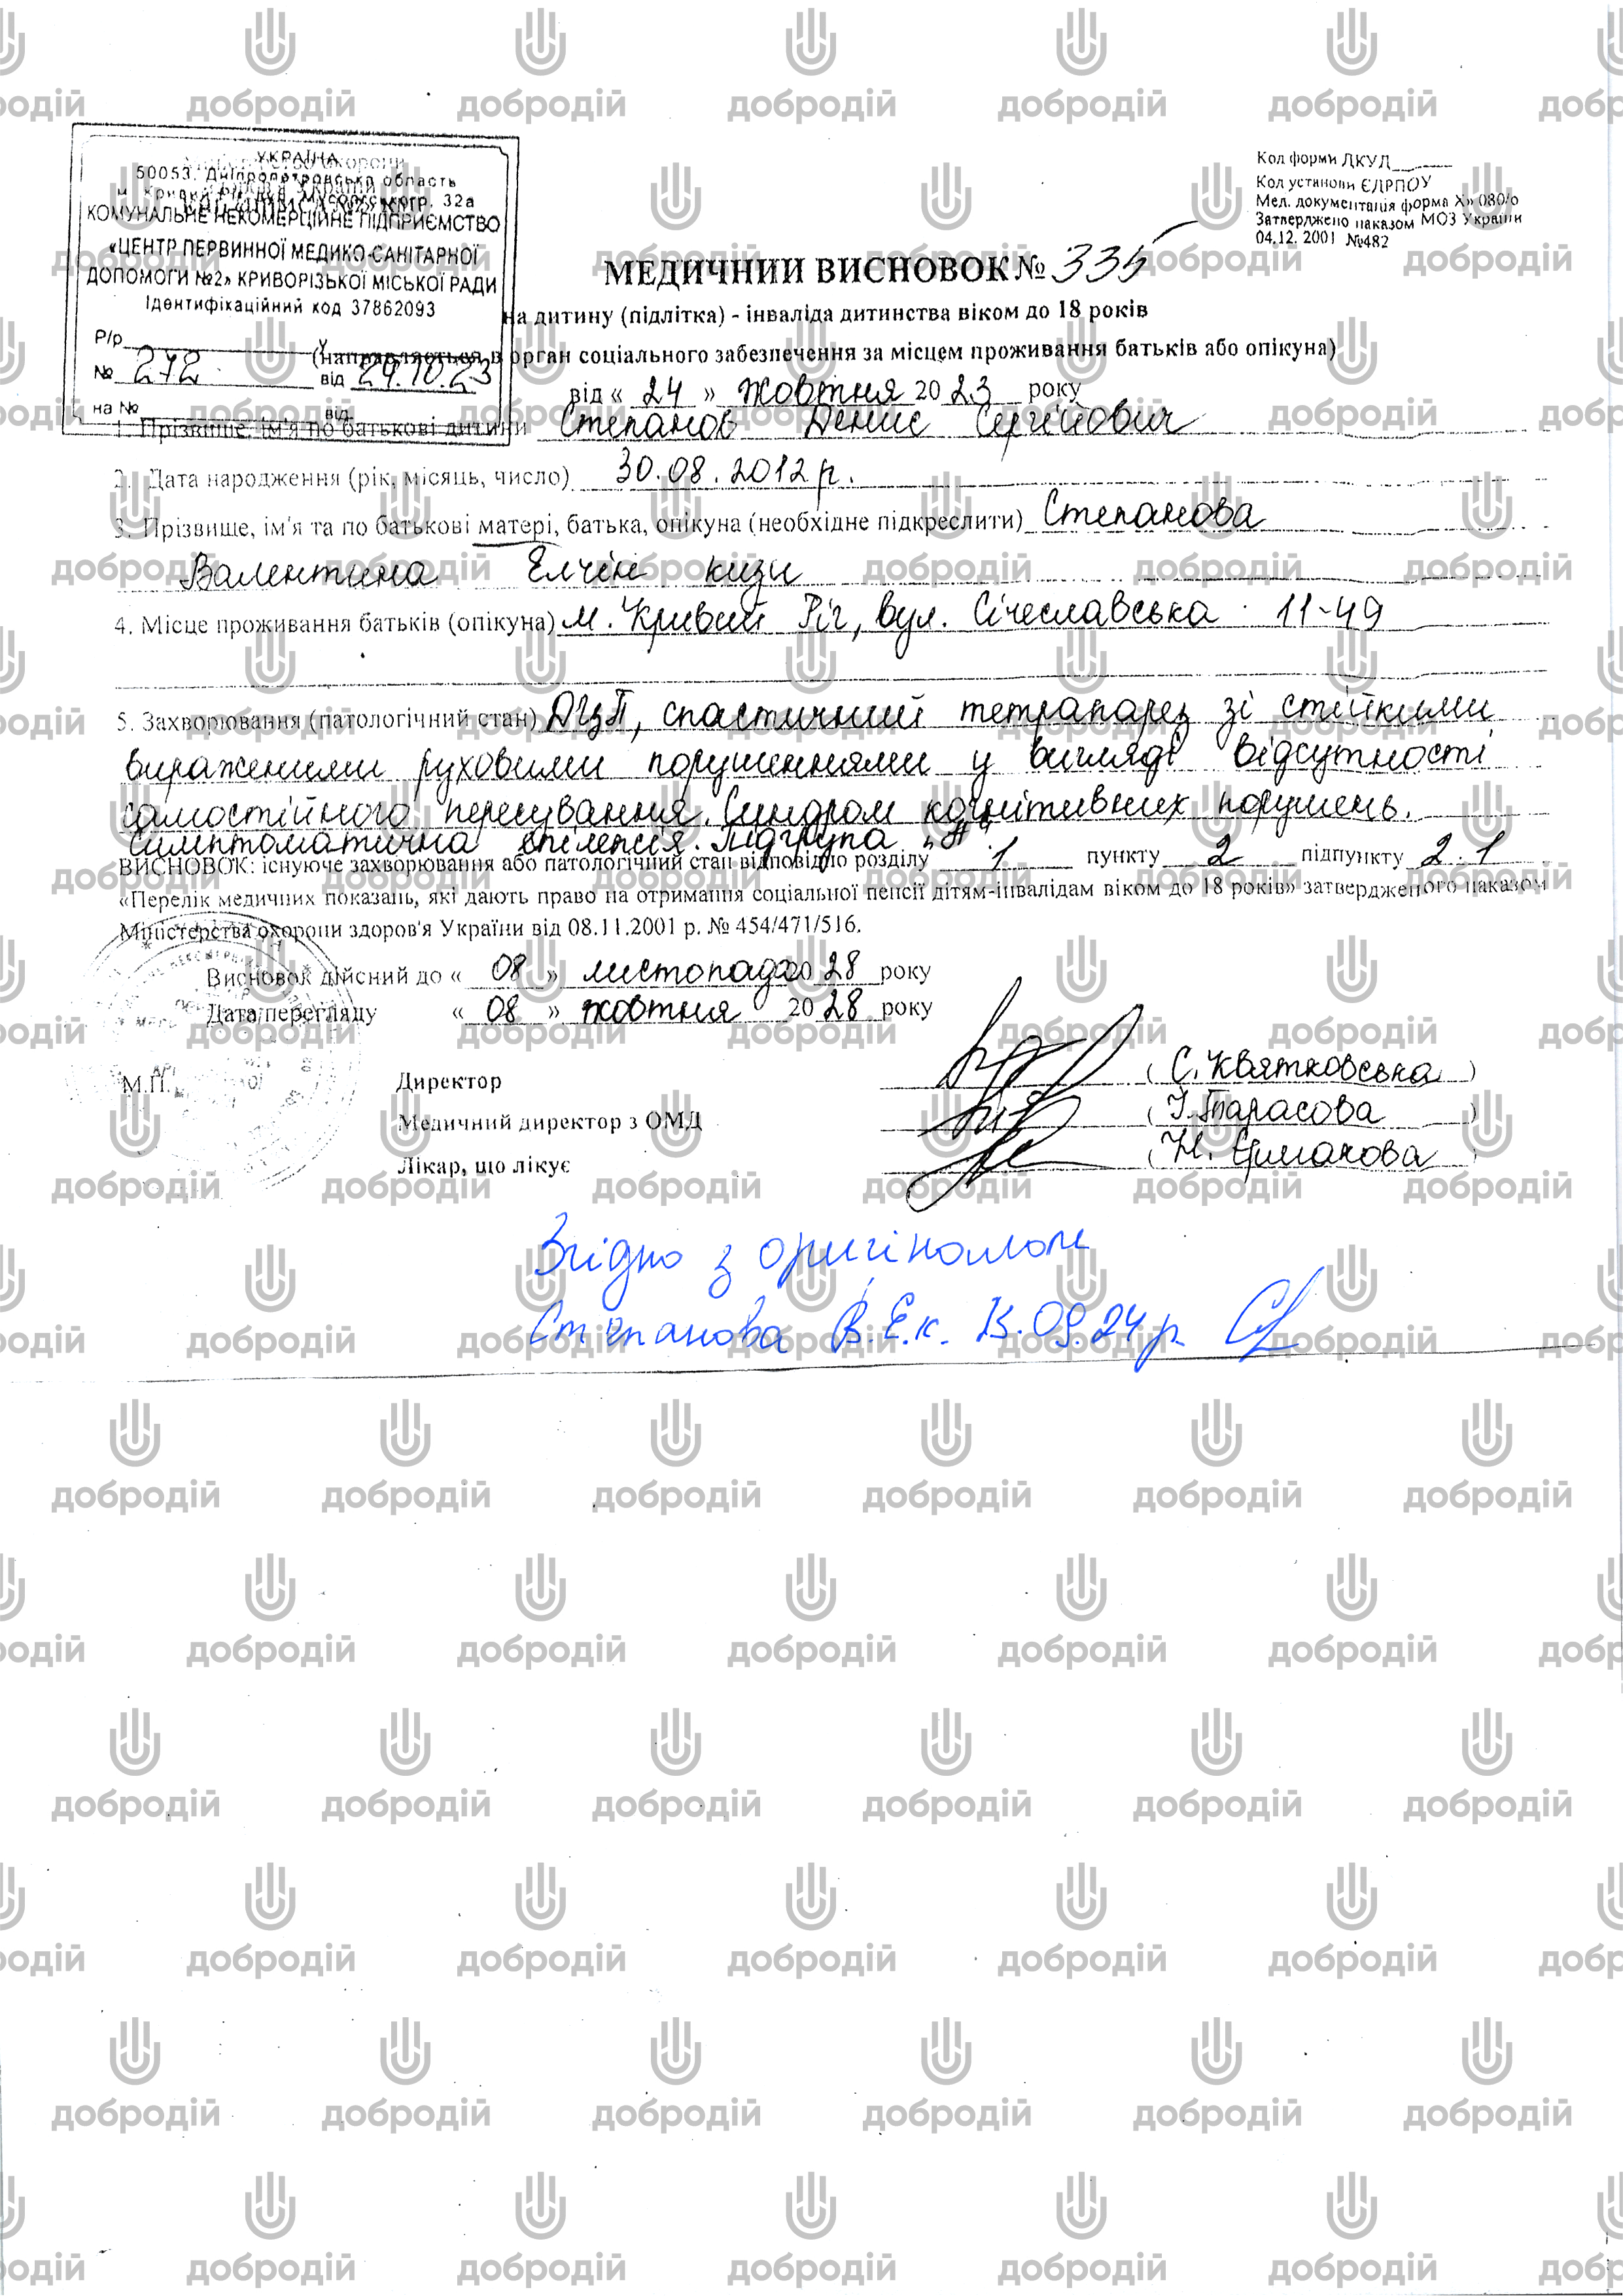 УКРАЇНА
50053, Дніпропетровська область
32а
КОМУНАЛЬНЕ НЕКОМЕРЦІЙНЕ ПІДПРИЄМСТВО
«ЦЕНТР ПЕРВИННОЇ МЕДИКО-САНІТАРНОЇ
ДОПОМОГИ №2» КРИВОРІЗЬКОЇ МІСЬКОЇ РАДИ
Ідентифікаційний код 37862093
Р/р
№ 272 від 24.10.23
на № від
Код форми ДКУД
Код установи ЄДРПОУ
Мед. документація форма № 080/о
Затверджено наказом МОЗ України
04.12. 2001 №482
МЕДИЧНИЙ ВИСНОВОК № 335
на дитину (підлітка) - інваліда дитинства віком до 18 років
(направляється в орган соціального забезпечення за місцем проживання батьків або опікуна)
від « 24 » жовтня 20 23 року
1. Прізвище, ім'я по батькові дитини Степанов Денис Сергійович
2. Дата народження (рік, місяць, число) 30.08.2012 р.
3. Прізвище, ім'я та по батькові матері, батька, опікуна (необхідне підкреслити) Степанова
Валентина Елчін кизи
4. Місце проживання батьків (опікуна) м. Кривий Ріг, вул. Січеславська 11-49
5. Захворювання (патологічний стан) ДЦП, спастичний тетрапарез зі стійкими
вираженими руховими порушеннями у вигляді відсутності
самостійного пересування. Синдром когнітивних порушень.
Симптоматична епілепсія. Підгрупа „А"
ВИСНОВОК: існуюче захворювання або патологічний стан відповідно розділу 1 пункту 2 підпункту 2.1
«Перелік медичних показань, які дають право на отримання соціальної пенсії дітям-інвалідам віком до 18 років» затвердженого наказом
Міністерства охорони здоров'я України від 08.11.2001 р. № 454/471/516.
Висновок дійсний до « 08 » листопада 20 28 року
Дата перегляду « 08 » жовтня 20 28 року
М.П.
Директор ( С. Квятковська )
Медичний директор з ОМД ( І. Тарасова )
Лікар, що лікує ( Н. Єрмакова )
Згідно з оригіналом
Степанова В.Е.к. 13.09.24 р.
добродій